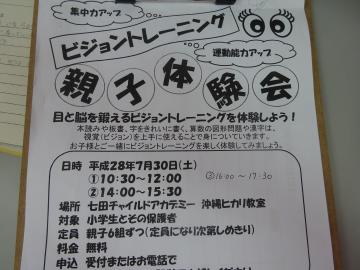 集中力アップ
ビジョントレーニング
運動能力アップ
親子体験会
目と脳を鍛えるビジョントレーニングを体験しよう!
本読みや板書、字をきれいに書く、算数の図形問題や漢字は、
視覚(ビジョン)を上手に使えることで身についていきます。
お子様とご一緒にビジョントレーニングを楽しく体験してみましょう。
日時 平成28年7月30日(土)
①10:30~12:00
③16:00~17:30
②14:00~15:30
場所 七田チャイルドアカデミー 沖縄ヒカリ教室
対象 小学生とその保護者
定員 親子6組ずつ(定員になり次第しめきり)
料金 無料
申込 受付またはお電話で